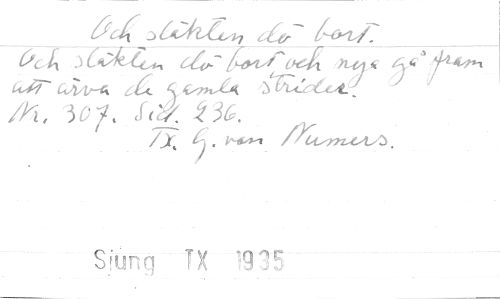 Och släkten dö bort.
Och släkten dö bort och nya gå fram
att ärva de gamla strider.
Nr. 307. Sid. 236.
Tx. G. von Numers.
Sjung TX 1935